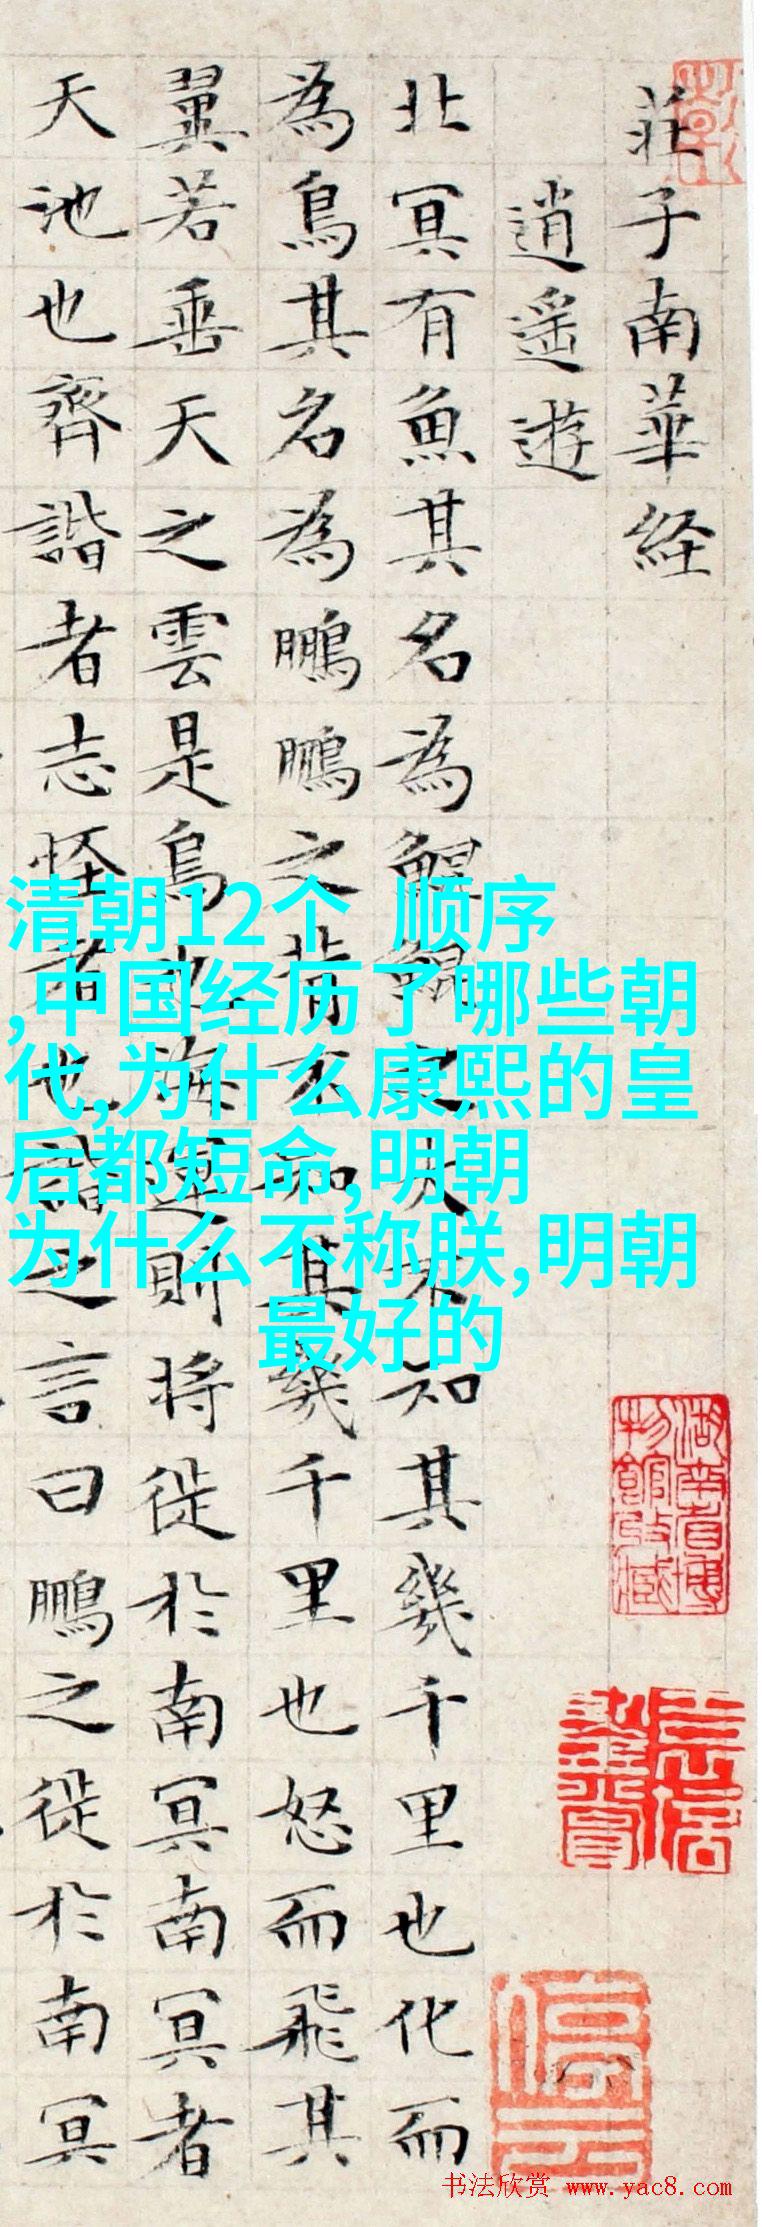 莊子南華経
逍遥遊
北冥有魚其名為鯤鯤之大不知其幾千里也化而
為鳥其名為鵬鵬之背不知其幾千里也怒而飛其
翼若垂天之雲是鳥也海運則将徙於南冥南冥者
天池也齊諧者志怪者也諧之言曰鵬之徙於南冥
清朝12个 顺序
,中国经历了哪些朝
代,为什么康熙的皇
后都短命,明朝
为什么不称朕,明朝
最好的
湖南省博
物館收藏
书法欣赏 www.yac8.com